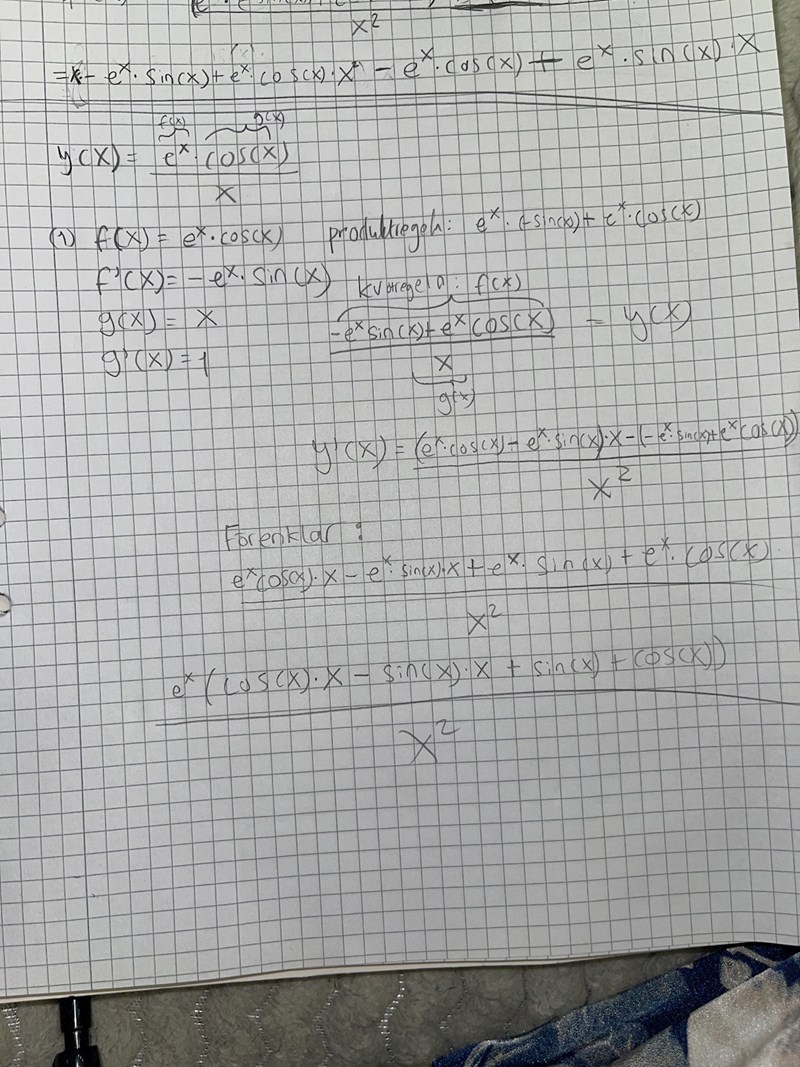 x²
= - eˣ · sin(x) + eˣ · cos(x) · x - eˣ · cos(x) + eˣ · sin(x) · x
f(x) g(x)
y(x) = eˣ · cos(x)
x
(1) f(x) = eˣ · cos(x) produktregeln: eˣ · (-sin(x) + eˣ · cos(x)
f'(x) = -eˣ · sin(x) kvotregeln: f(x)
g(x) = x -eˣ sin(x) + eˣ cos(x) = y(x)
g'(x) = 1 x
g(x)
y'(x) = (eˣ · cos(x) - eˣ · sin(x)) · x - (-eˣ · sin(x) + eˣ cos(x))
x²
Förenklar:
eˣ cos(x) · x - eˣ · sin(x) · x + eˣ · sin(x) + eˣ · cos(x)
x²
eˣ (cos(x) · x - sin(x) · x + sin(x) + cos(x))
x²